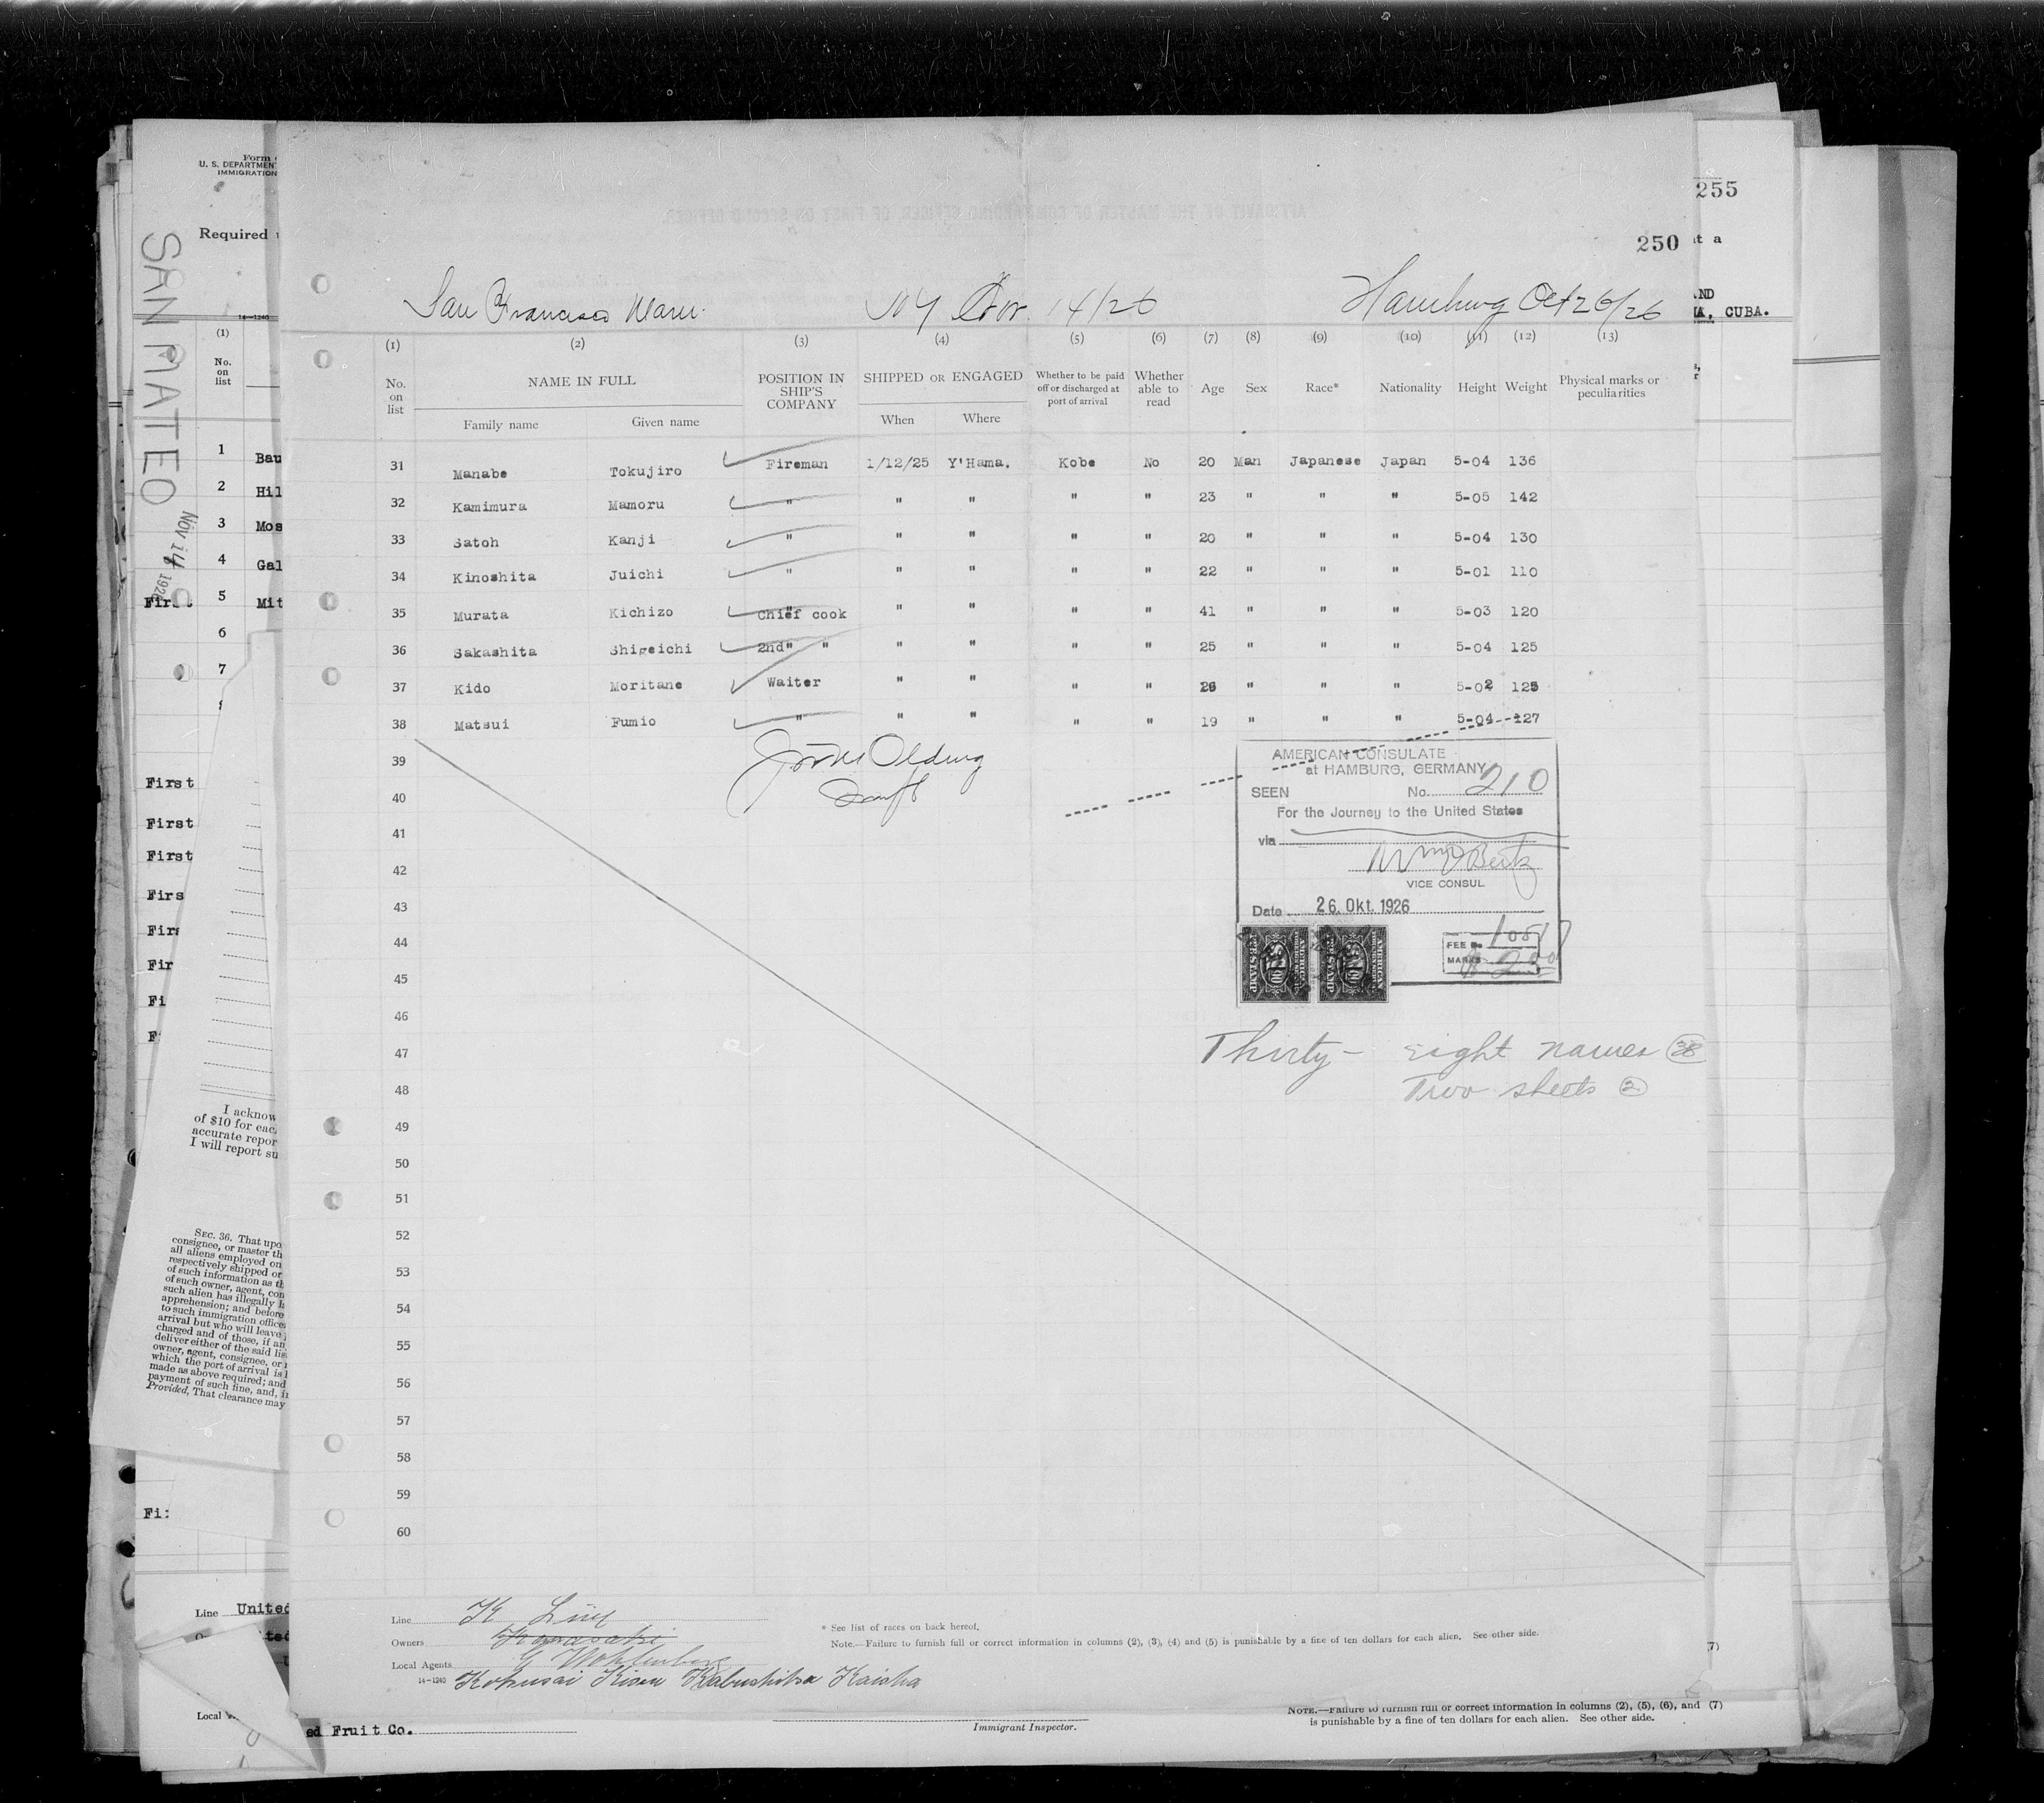 255
250
San Francisco Maru. NY Nov. 14/26 Hamburg Oct 26/26
(1) (2) (3) (4) (5) (6) (7) (8) (9) (10) (11) (12) (13)
No. on list NAME IN FULL POSITION IN SHIP'S COMPANY SHIPPED OR ENGAGED Whether to be paid off or discharged at port of arrival Whether able to read Age Sex Race* Nationality Height Weight Physical marks or peculiarities
Family name Given name When Where
31 Manabe Tokujiro Fireman 1/12/25 Y'Hama. Kobe No 20 Man Japanese Japan 5-04 136
32 Kamimura Mamoru " " " " " 23 " " " 5-05 142
33 Satoh Kanji " " " " " 20 " " " 5-04 130
34 Kinoshita Juichi " " " " " 22 " " " 5-01 110
35 Murata Kichizo Chief cook " " " " 41 " " " 5-03 120
36 Sakashita Shigeichi 2nd" " " " " " 25 " " " 5-04 125
37 Kido Moritane Waiter " " " " 26 " " " 5-02 125
38 Matsui Fumio " " " " " 19 " " " 5-04 127
39
40
41
42
43
44
45
46
47
48
49
50
51
52
53
54
55
56
57
58
59
60
AMERICAN CONSULATE
at HAMBURG, GERMANY
SEEN No. 210
For the Journey to the United States
via
VICE CONSUL
Date 26. Okt. 1926
FEE No
MARKS
Thirty-eight names 38
Two sheets 2
Line K Line
Owners Kawasaki
Local Agents G Wohlenberg
14-1240 Kokusai Kisen Kabushiksa Kaisha
* See list of races on back hereof.
Note.—Failure to furnish full or correct information in columns (2), (3), (4) and (5) is punishable by a fine of ten dollars for each alien. See other side.
SAN MATEO
NOV 14 1926
U. S. DEPARTMEN
IMMIGRATION
Required
14-1240
(1)
No. on list
1 Bau
2 Hil
3 Mos
4 Gal
5 Mit
6
7
First
First
First
Firs
Fir
Fi
I acknow
of $10 for eac
accurate repor
I will report su
SEC. 36. That upo
consignee, or master th
all aliens employed on
respectively shipped or
of such information as th
of such owner, agent, con
such alien has illegally
apprehension; and before
to such immigration office
arrival but who will leave
charged and of those, if an
deliver either of the said
owner, agent, consignee, or
which the port of arrival is
made as above required; and
payment of such fine, and,
Provided, That clearance may
Line United
Local
ed Fruit Co.
Immigrant Inspector.
NOTE.—Failure to furnish full or correct information in columns (2), (5), (6), and (7)
is punishable by a fine of ten dollars for each alien. See other side.
at a
CUBA.